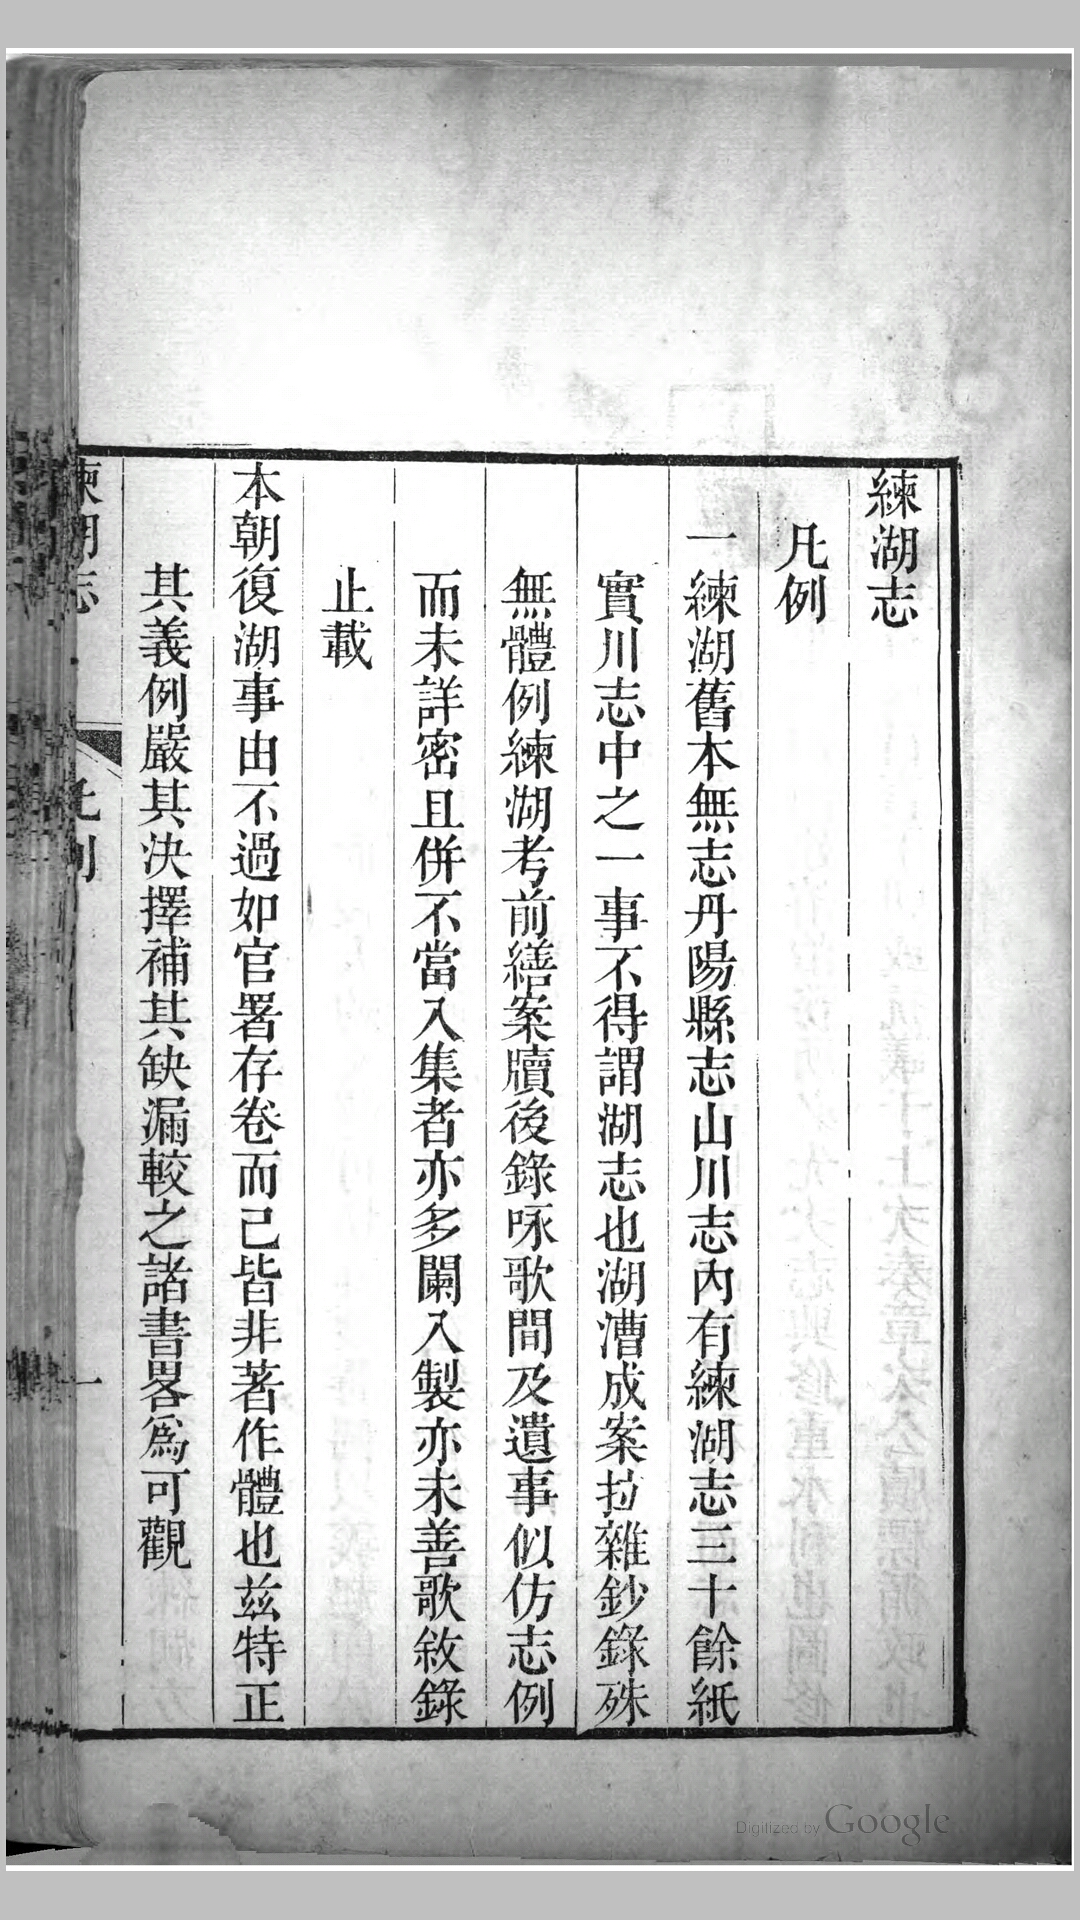 練湖志
凡例
一練湖舊本無志丹陽縣志山川志內有練湖志三十餘紙
實川志中之一事不得謂湖志也湖漕成案拉雜鈔錄殊
無體例練湖考前繕案牘後錄咏歌間及遺事似仿志例
而未詳密且併不當入集者亦多闌入製亦未善歌敘錄
止載
本朝復湖事由不過如官署存卷而己皆非著作體也茲特正
其義例嚴其決擇補其缺漏較之諸書畧為可觀
練湖志
凡例
一
Digitized by Google